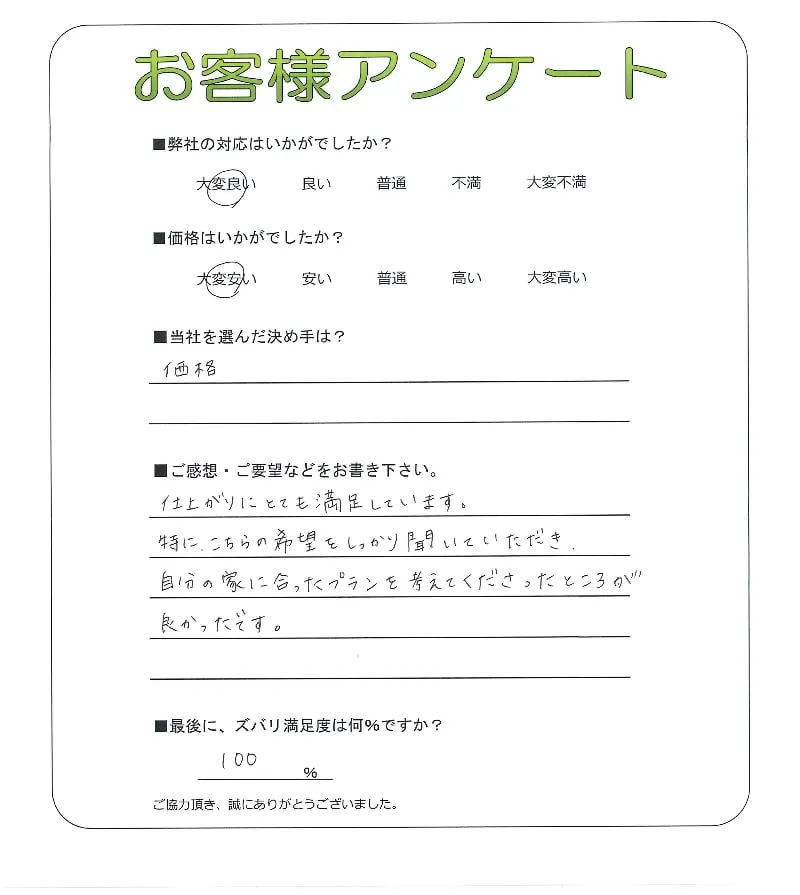 お客様アンケート
■弊社の対応はいかがでしたか？
大変良い 良い 普通 不満 大変不満
■価格はいかがでしたか？
大変安い 安い 普通 高い 大変高い
■当社を選んだ決め手は？
価格
■ご感想・ご要望などをお書き下さい。
仕上がりにとても満足しています。
特に、こちらの希望をしっかり聞いていただき、
自分の家に合ったプランを考えてくださったところが
良かったです。
■最後に、ズバリ満足度は何％ですか？
100 ％
ご協力頂き、誠にありがとうございました。